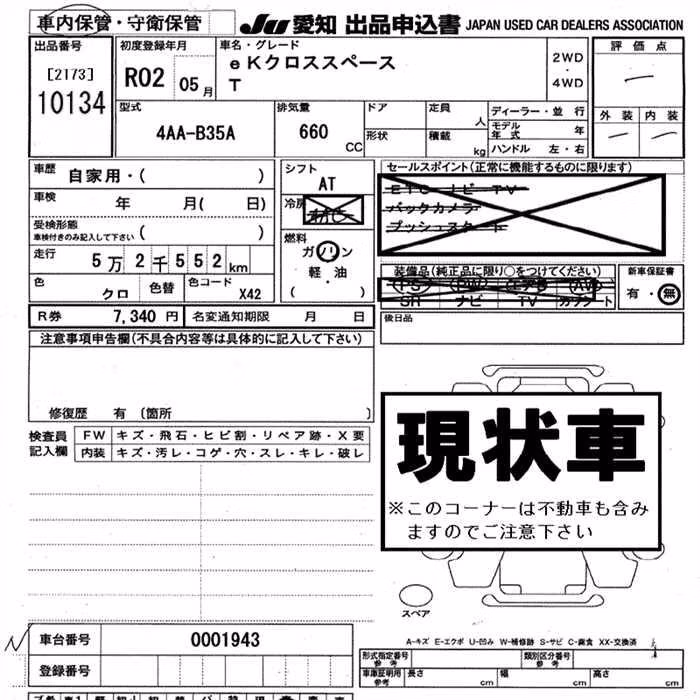 車内保管・守衛保管 JU 愛知 出品申込書 JAPAN USED CAR DEALERS ASSOCIATION
出品番号
[2173]
10134
初度登録年月
R02 05月
車名・グレード
eKクロススペース
T
2WD
・
4WD
評価点
外装 内装
型式
4AA-B35A
排気量
660
CC
ドア
形状
定員
人
積載
kg
ディーラー・並行
モデル年式 年
ハンドル 左・右
車歴 自家用・( )
車検 年 月( 日)
受検形態
車検付きのみ記入して下さい ( )
走行 5万2千552km
色 クロ 色替 色コード X42
シフト
AT
冷房
燃料
ガソリン
軽・油
( )
セールスポイント(正常に機能するものに限ります)
ETC ナビ TV
バックカメラ
プッシュスタート
装備品(純正品に限り○をつけてください)
PS PW エアB AW
SR ナビ TV カワシート
新車保証書
有・無
R券 7,340 円 名変通知期限 月 日
後日品
注意事項申告欄(不具合内容等は具体的に記入して下さい)
修復歴 有 〔箇所 〕
検査員記入欄
FW キズ・飛石・ヒビ割・リペア跡・X要
内装 キズ・汚レ・コゲ・穴・スレ・キレ・破レ
現状車
※このコーナーは不動車も含み
ますのでご注意下さい
スペア
車台番号 0001943
登録番号
A-キズ E-エクボ U-凹み W-補修跡 S-サビ C-腐食 XX-交換済
形式指定番号
参考
類別区分番号
参考
車庫証明用
参考
長さ cm 幅 cm 高さ cm